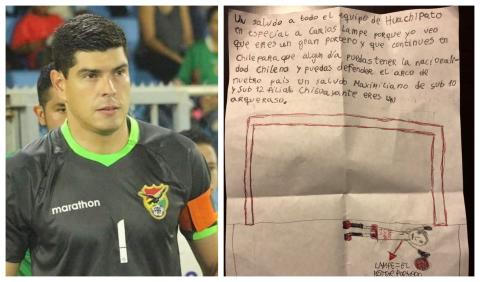 marathon
1
Un saludo a todo el equipo de Huachipato
en especial a Carlos Lampe porque yo veo
que eres un gran portero y que continues en
Chile para que algun dia puedas tener la nacionali-
dad Chilena y puedas defender el arco de
nuestro pais un saludo Maximiliano de sub 10
y sub 12 filial Chiguayante eres un
arquerazo.
LAMPE = EL
MEJOR PORTERO